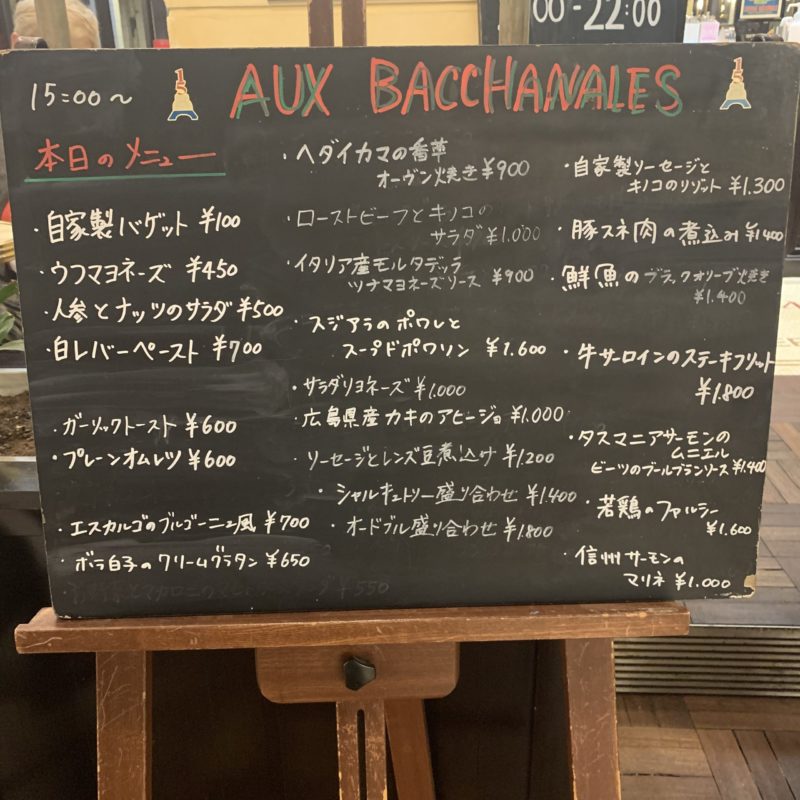 00 - 22:00
15:00～
AUX BACCHANALES
本日のメニュー
・自家製バゲット ¥100
・ウフマヨネーズ ¥450
・人参とナッツのサラダ ¥500
・白レバーペースト ¥700
・ガーリックトースト ¥600
・プレーンオムレツ ¥600
・エスカルゴのブルゴーニュ風 ¥700
・ボラ白子のクリームグラタン ¥650
¥550
・ヘダイカマの香草
オーヴン焼き ¥900
・ローストビーフとキノコの
サラダ ¥1.000
・イタリア産モルタデッラ
ツナマヨネーズソース ¥900
・スジアラのポワレと
スープドポワソン ¥1.600
・サラダリヨネーズ ¥1.000
・広島県産カキのアヒージョ ¥1.000
・ソーセージとレンズ豆煮込み ¥1.200
・シャルキュトリー盛り合わせ ¥1.400
・オードブル盛り合わせ ¥1.800
・自家製ソーセージと
キノコのリゾット ¥1.300
・豚スネ肉の煮込み ¥1400
・鮮魚のブラックオリーブ焼き
¥1.400
・牛サーロインのステーキフリット
¥1.800
・タスマニアサーモンの
ムニエル
ビーツのブールブランソース ¥1.400
・若鶏のファルシー
¥1.600
・信州サーモンの
マリネ ¥1.000